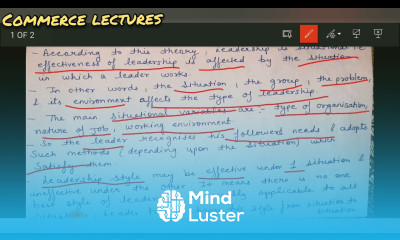 COMMERCE LECTURES
1 OF 2
- According to this theory, leadership is situational i.e
effectiveness of leadership is affected by the situation
in which a leader works.
- In other words, the situation, the group, the problem,
& its environment affects the type of leadership.
- The main situational variables are :- type of organisation,
nature of job, working environment
- So the leader recognises his followers needs & adopts
Such methods (depending upon the situation) which
Satisfy them
- Leadership style may be effective under 1 situation &
uneffective under the other. It means there is no one
best style of applicable to all
situation to situation
Mind
Luster